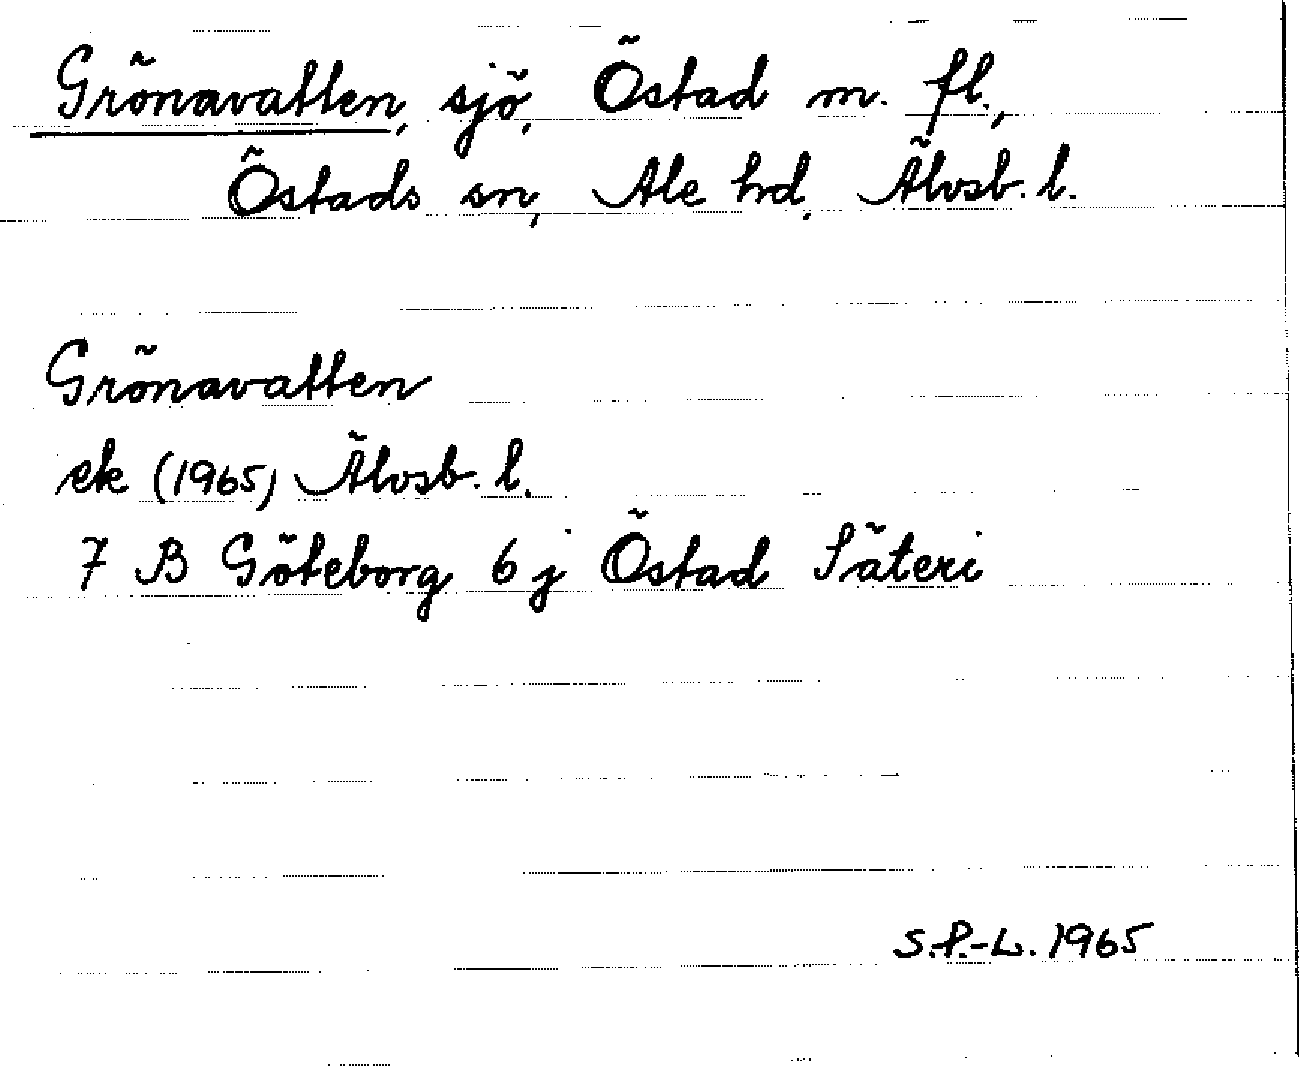 Grönavatten, sjö, Östad m. fl.,
Östads sn, Ale hd, Älvsb. l.
Grönavatten
ek (1965) Älvsb. l.
7 B Göteborg 6 j Östad Säteri
S.P.-L. 1965